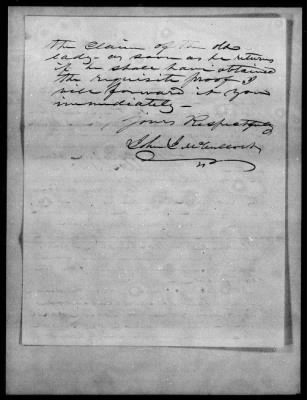 the Claim of the old
lady - as soon as he returns
if he shall have obtained
the requisite proof I
will forward it you
immediately -
Yours Respectfully
John